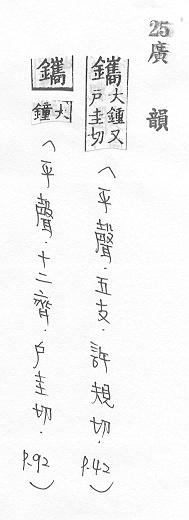 25廣韻
鑴大鍾又戶圭切(平聲.五支.許規切.P.42)
鑴大鐘(平聲.十二齊.戶圭切.P.92)